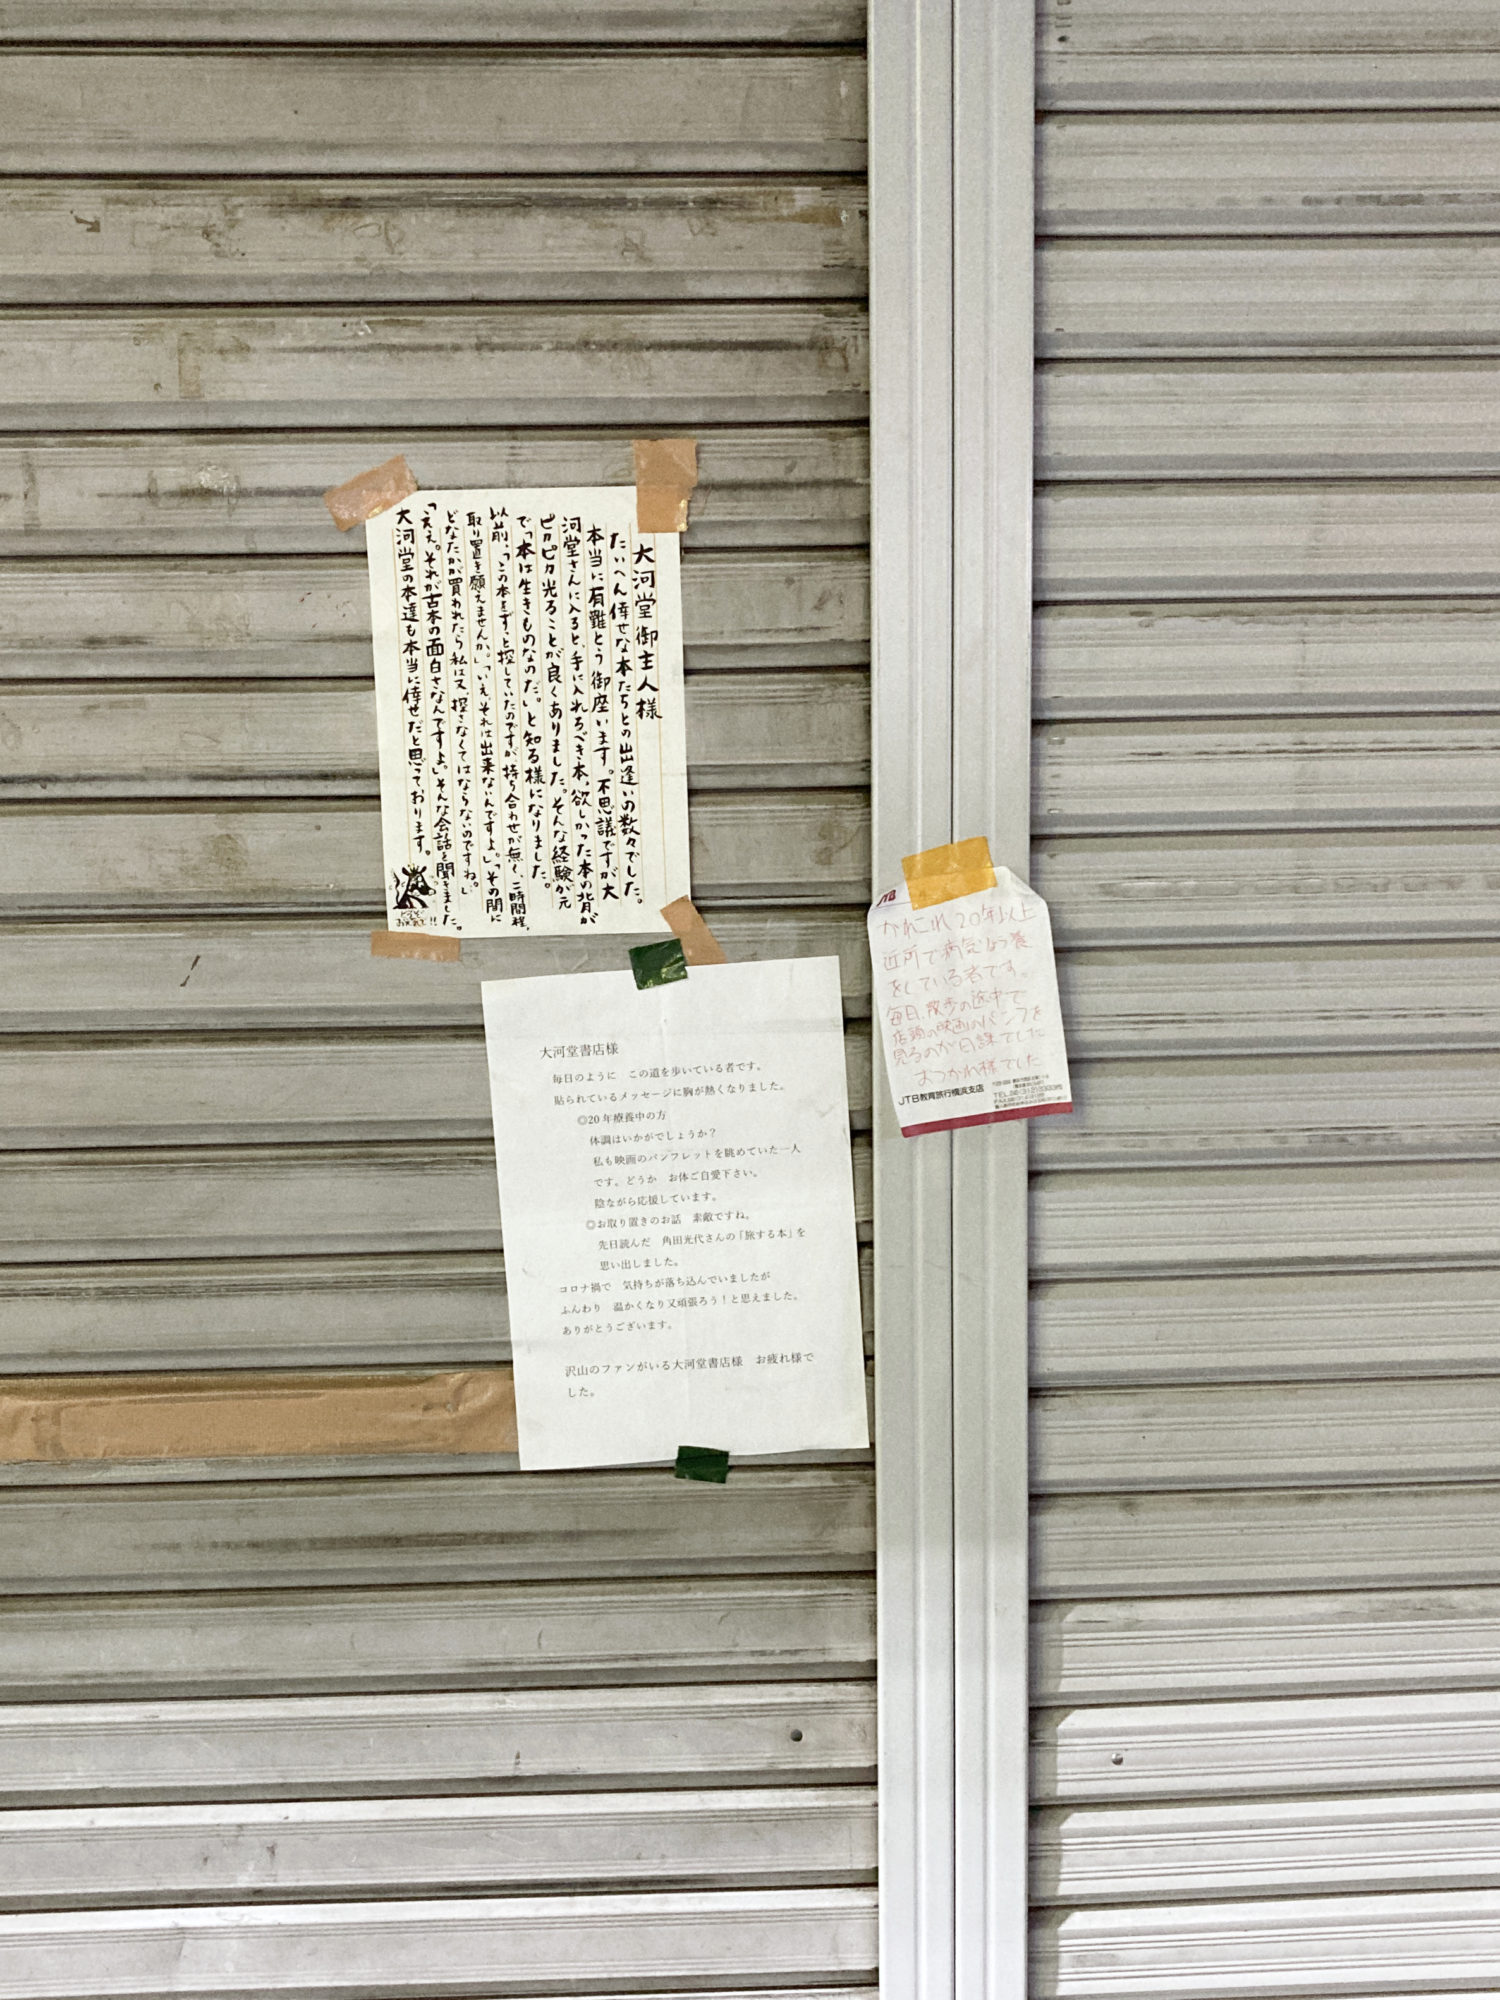 大河堂御主人様
たいへん倖せな本たちとの出逢いの数々でした。
本当に有難とう御座います。不思議ですが大
河堂さんに入ると、手に入れるべき本、欲しかった本の背が
ピカピカ光ることが良くありました。そんな経験が元
で「本は生きものなのだ。」と知る様になりました。
以前、「この本をずっと探していたのですが持ち合わせが無く、二時間程、
取り置き願えませんか。」「いえ、それは出来ないんですよ。」「その間に
どなたかが買われたら私は又、探さなくてはならないのですね。」
「ええ。それが古本の面白さなんですよ。」そんな会話を聞きました。
大河堂の本達も本当に倖せだと思っております。
JTB
かれこれ20年以上
近所で病気りょう養
をしている者です。
毎日、散歩の途中で
店頭の映画のパンフを
見るのが日課でした
おつかれ様でした
JTB教育旅行横浜支店
大河堂書店様
毎日のように　この道を歩いている者です。
貼られているメッセージに胸が熱くなりました。
◎20年療養中の方
体調はいかがでしょうか？
私も映画のパンフレットを眺めていた一人
です。どうか　お体ご自愛下さい。
陰ながら応援しています。
◎お取り置きのお話　素敵ですね。
先日読んだ　角田光代さんの「旅する本」を
思い出しました。
コロナ禍で　気持ちが落ち込んでいましたが
ふんわり　温かくなり又頑張ろう！と思えました。
ありがとうございます。
沢山のファンがいる大河堂書店様　お疲れ様で
した。